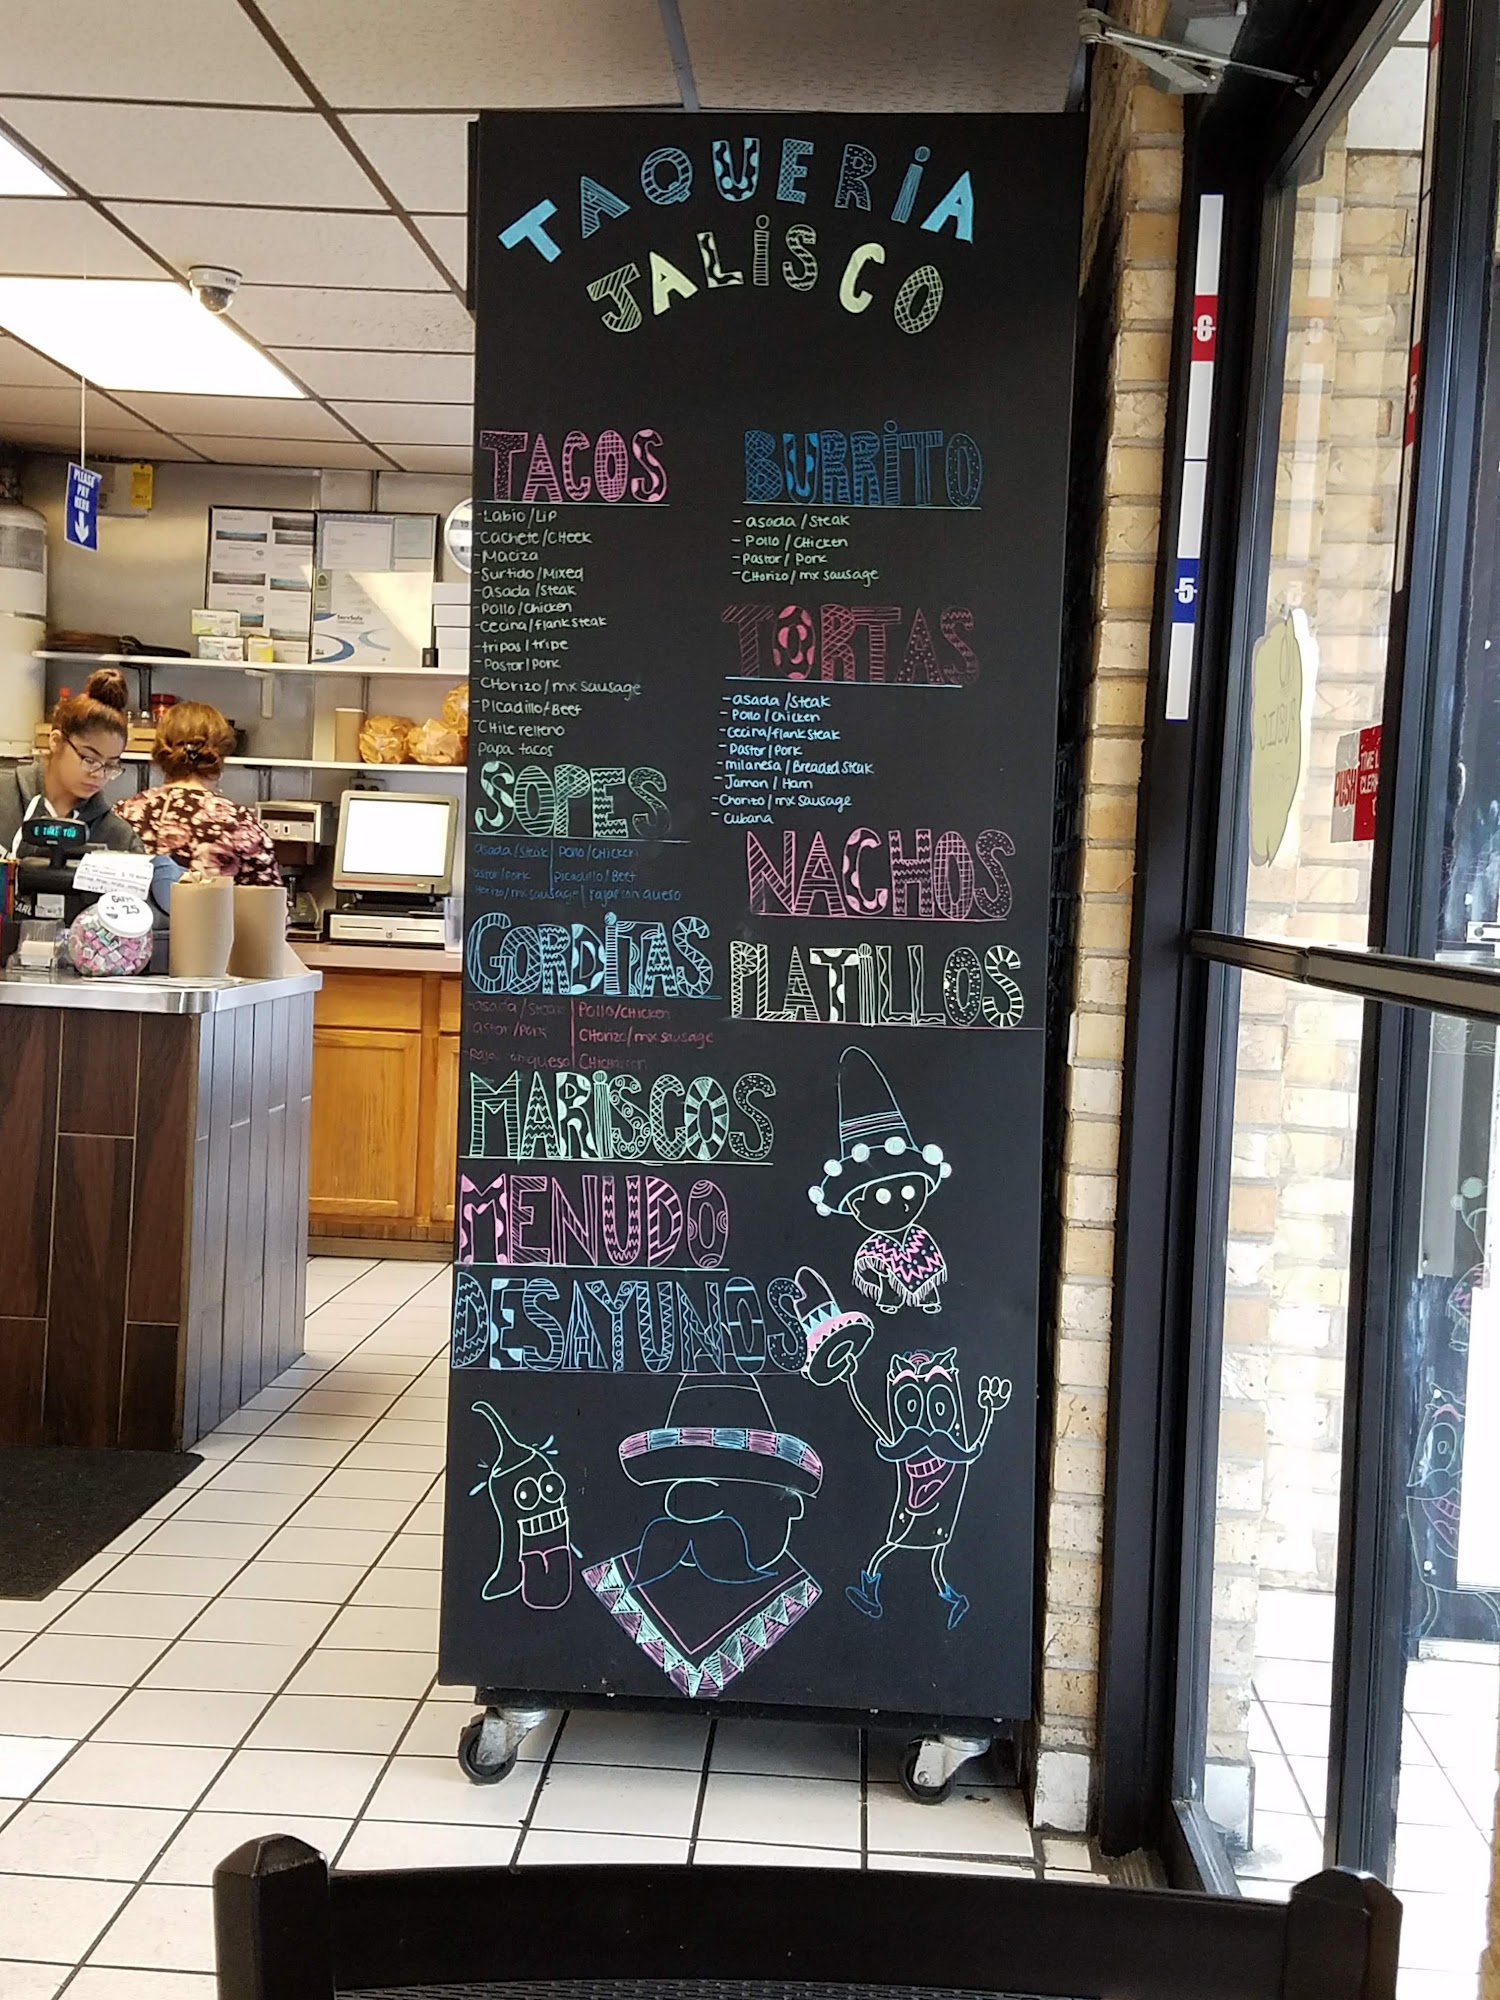 TAQUERIA
JALISCO
TACOS
-Labio/Lip
-Cachete/Cheek
-Maciza
-Surtido/Mixed
-asada/steak
-Pollo/Chicken
-Cecina/flank steak
-tripas/tripe
-Pastor/Pork
-CHorizo/mx sausage
-Picadillo/Beef
-CHile relleno
-papa tacos
SOPES
asada/steak | pollo/CHicken
astor/pork | picadillo/Beef
Horizo/mx sausage | rajas con queso
GORDITAS
-asada/steak | Pollo/CHicken
Pastor/Pork | CHorizo/mx sausage
-Rajas con queso | CHicharron
MARISCOS
MENUDO
DESAYUNOS
BURRITO
- asada/steak
- Pollo/CHicken
- Pastor/Pork
- CHorizo/mx sausage
TORTAS
- asada/steak
- Pollo/Chicken
- Cecina/flank steak
- Pastor/Pork
- milanesa/Breaded steak
- Jamon/Ham
- Chorizo/mx sausage
- Cubana
NACHOS
PLATILLOS
PLEASE
PAY
HERE
ServSafe
25
-6-
-5-
PUSH